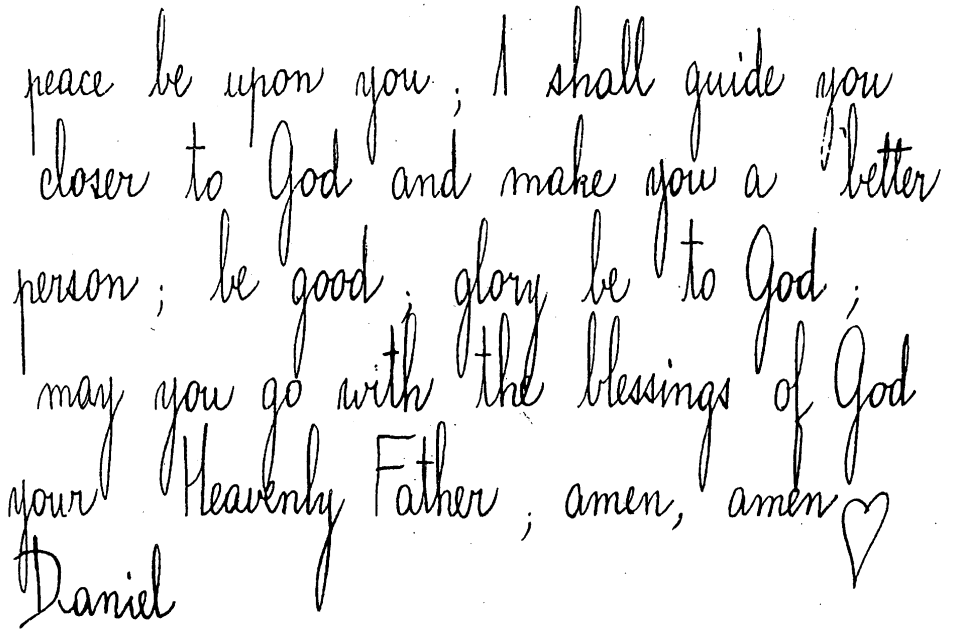 peace be upon you ; I shall guide you
closer to God and make you a better
person ; be good ; glory be to God ;
may you go with the blessings of God
your Heavenly Father ; amen, amen ♡
Daniel